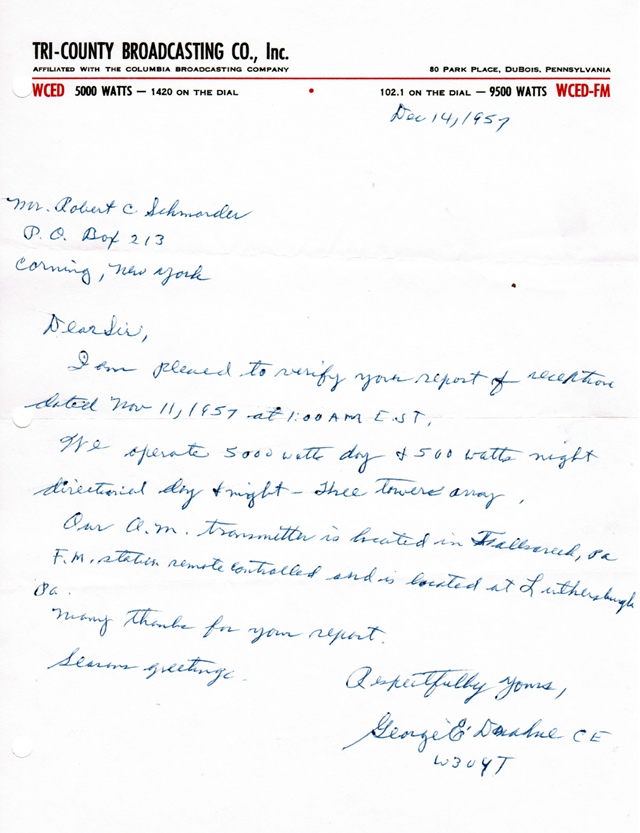 TRI-COUNTY BROADCASTING CO., Inc.
AFFILIATED WITH THE COLUMBIA BROADCASTING COMPANY 80 PARK PLACE, DUBOIS, PENNSYLVANIA
WCED 5000 WATTS — 1420 ON THE DIAL • 102.1 ON THE DIAL — 9500 WATTS WCED-FM
Dec 14, 1957
Mr. Robert C. Schmorder
P.O. Box 213
Corning, New York
Dear Sir,
I am pleased to verify your report of reception
dated Nov 11, 1957 at 1:00 AM EST.
We operate 5000 watts day & 500 watts night
directional day & night — Three towers array.
Our A.M. transmitter is located in Pa
F.M. station remote controlled and is located at Luthersburgh
Pa.
Many thanks for your report.
Seasons greetings.
Respectfully Yours,
George E. CE